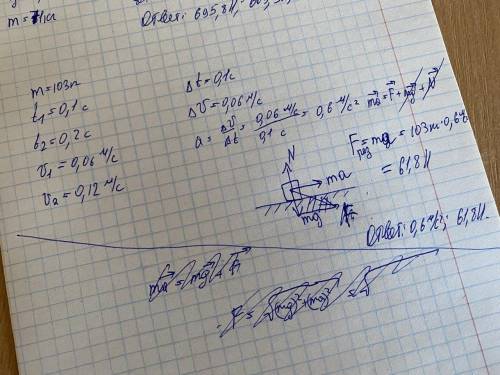 m=71кг
Ответ: 695,8Н;
m=103кг
t₁=0,1с
t₂=0,2с
v₁=0,06м/с
v₂=0,12м/с
Δt=0,1с
Δv=0,06м/с
a = Δv/Δt = 0,06м/с / 0,1с = 0,6м/с²
ma=F+mg+N
Fрез=ma=103кг·0,6м/с²
=61,8Н
N
ma
mg
Ответ: 0,6м/с²; 61,8Н.
ma=mg+F